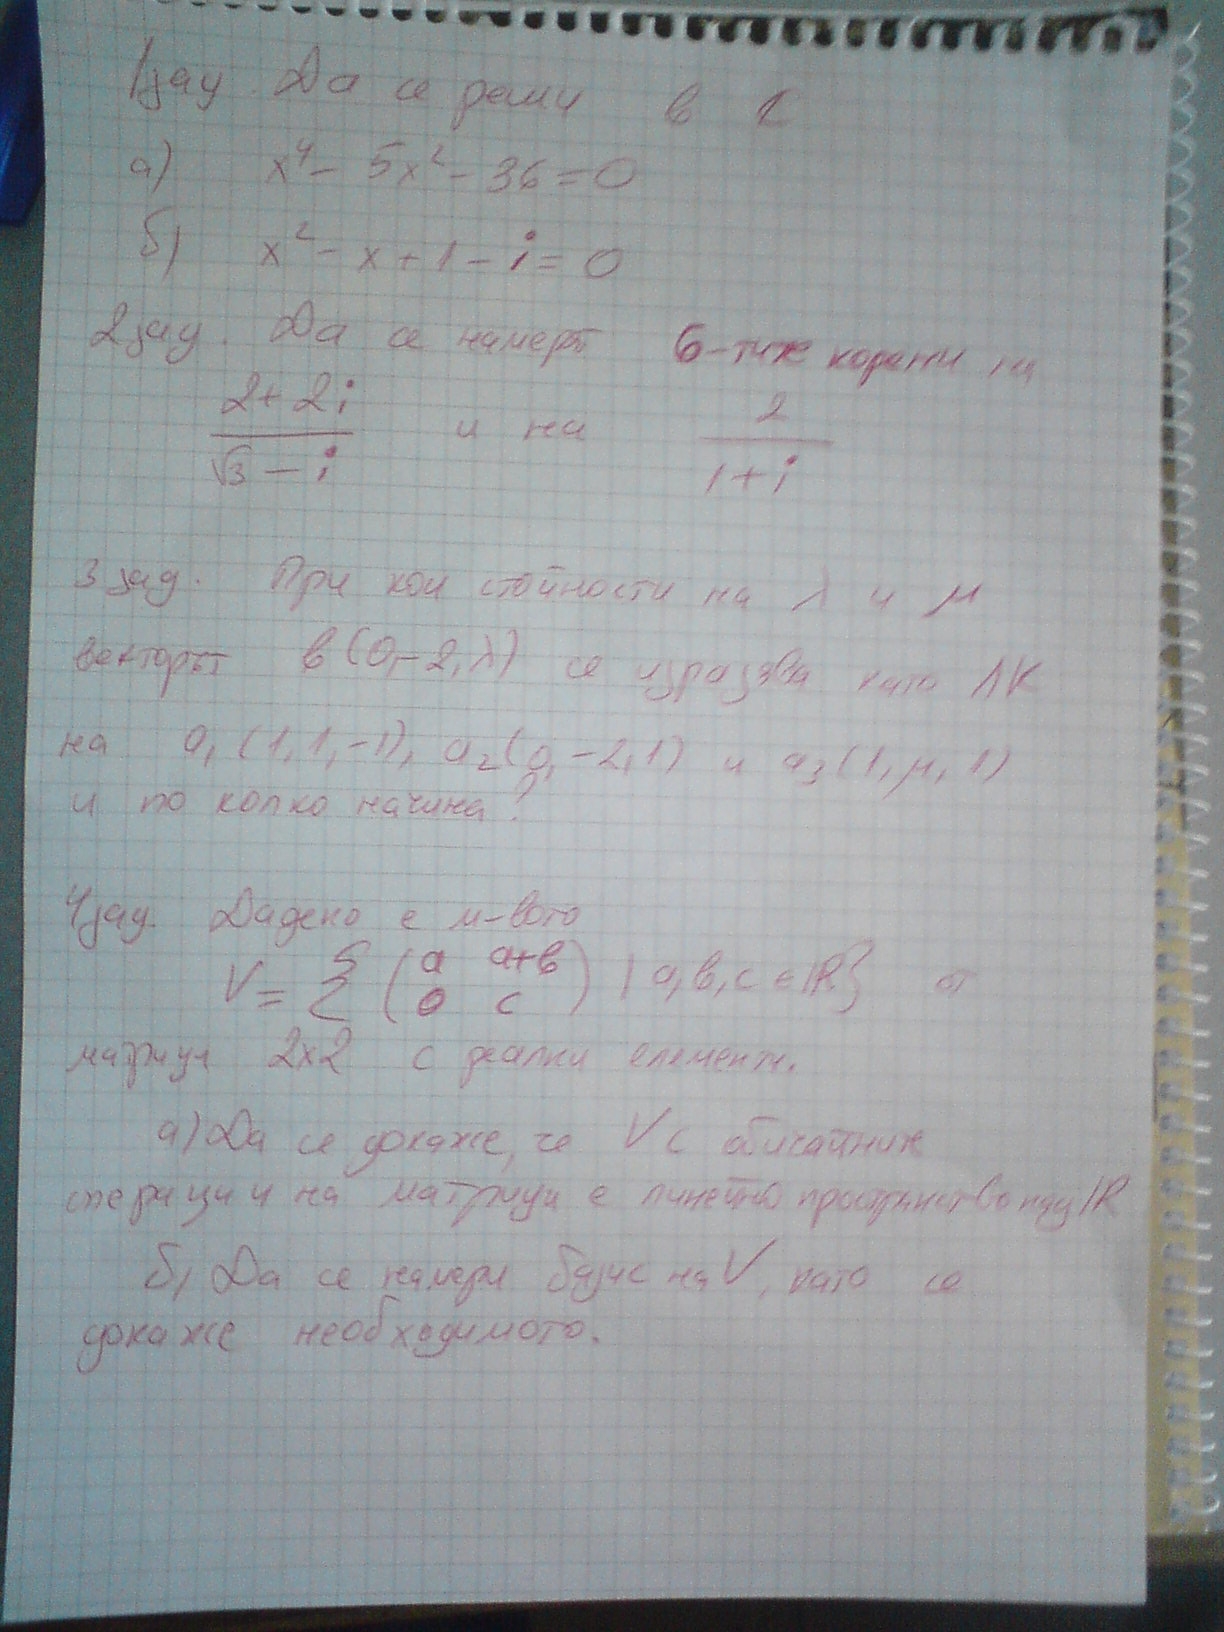 1зад. Да се реши в C
а) x⁴ - 5x² - 36 = 0
б) x² - x + 1 - i = 0
2зад. Да се намерят 6-тите корени на
(2+2i)/(√3 - i) и на 2/(1+i)
3зад. При кои стойности на λ и μ
векторът в(0,-2,λ) се изразява като ЛК
на a₁(1,1,-1), a₂(0,-2,1) и a₃(1,μ,1)
и по колко начина?
4зад. Дадено е м-вото
V = { (a a+в; 0 c) | a,в,c ∈ ℝ} от
матрици 2x2 с реални елементи.
а) Да се докаже, че V с обичайните
операции на матрици е линейно пространство над ℝ
б) Да се намери базис на V, като се
докаже необходимото.